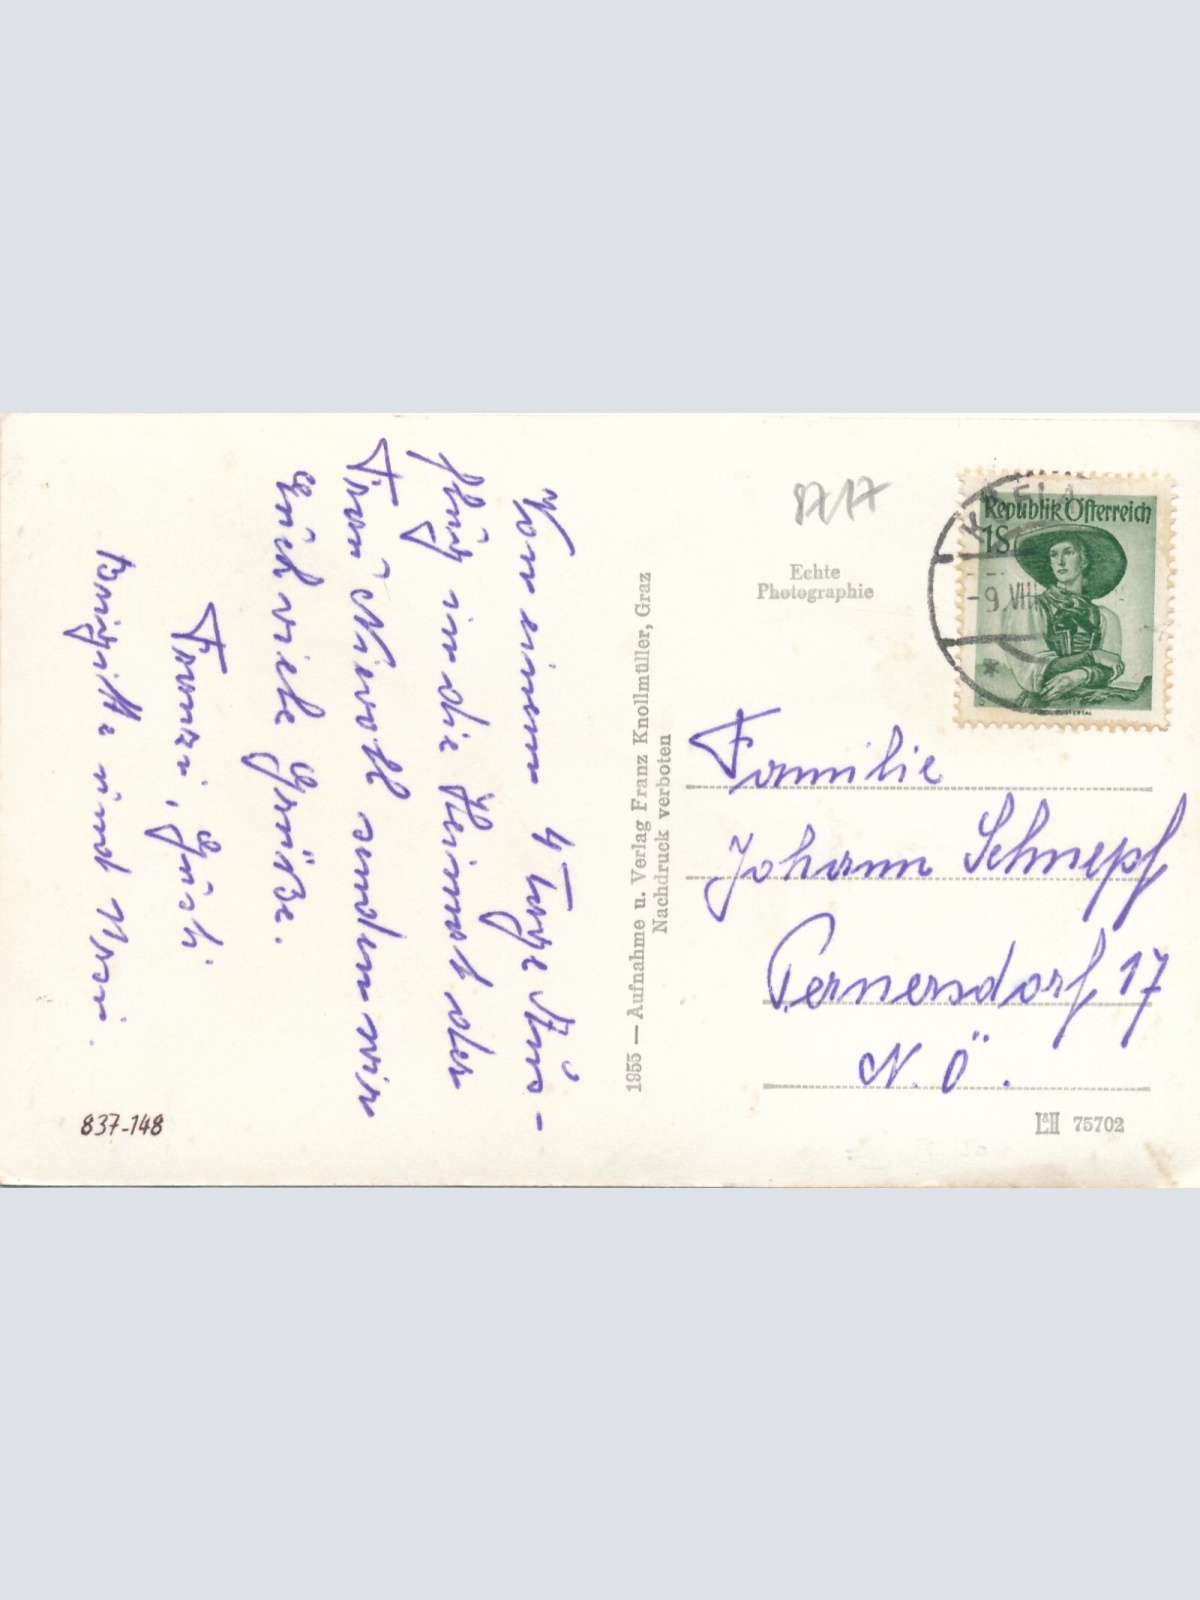 Von einem 4 Tage Aus-
flug in die Heimat der
Frau Nievoll senden wir
Euch viele Grüße.
Franzi, Gusti
Brigitte und
837-148
1955 — Aufnahme u. Verlag Franz Knollmüller, Graz
Nachdruck verboten
8717
Echte
Photographie
Republik Österreich
1S
-9.VIII
Familie
Johann Schnepf
Pernersdorf 17
N.Ö.
L&H 75702